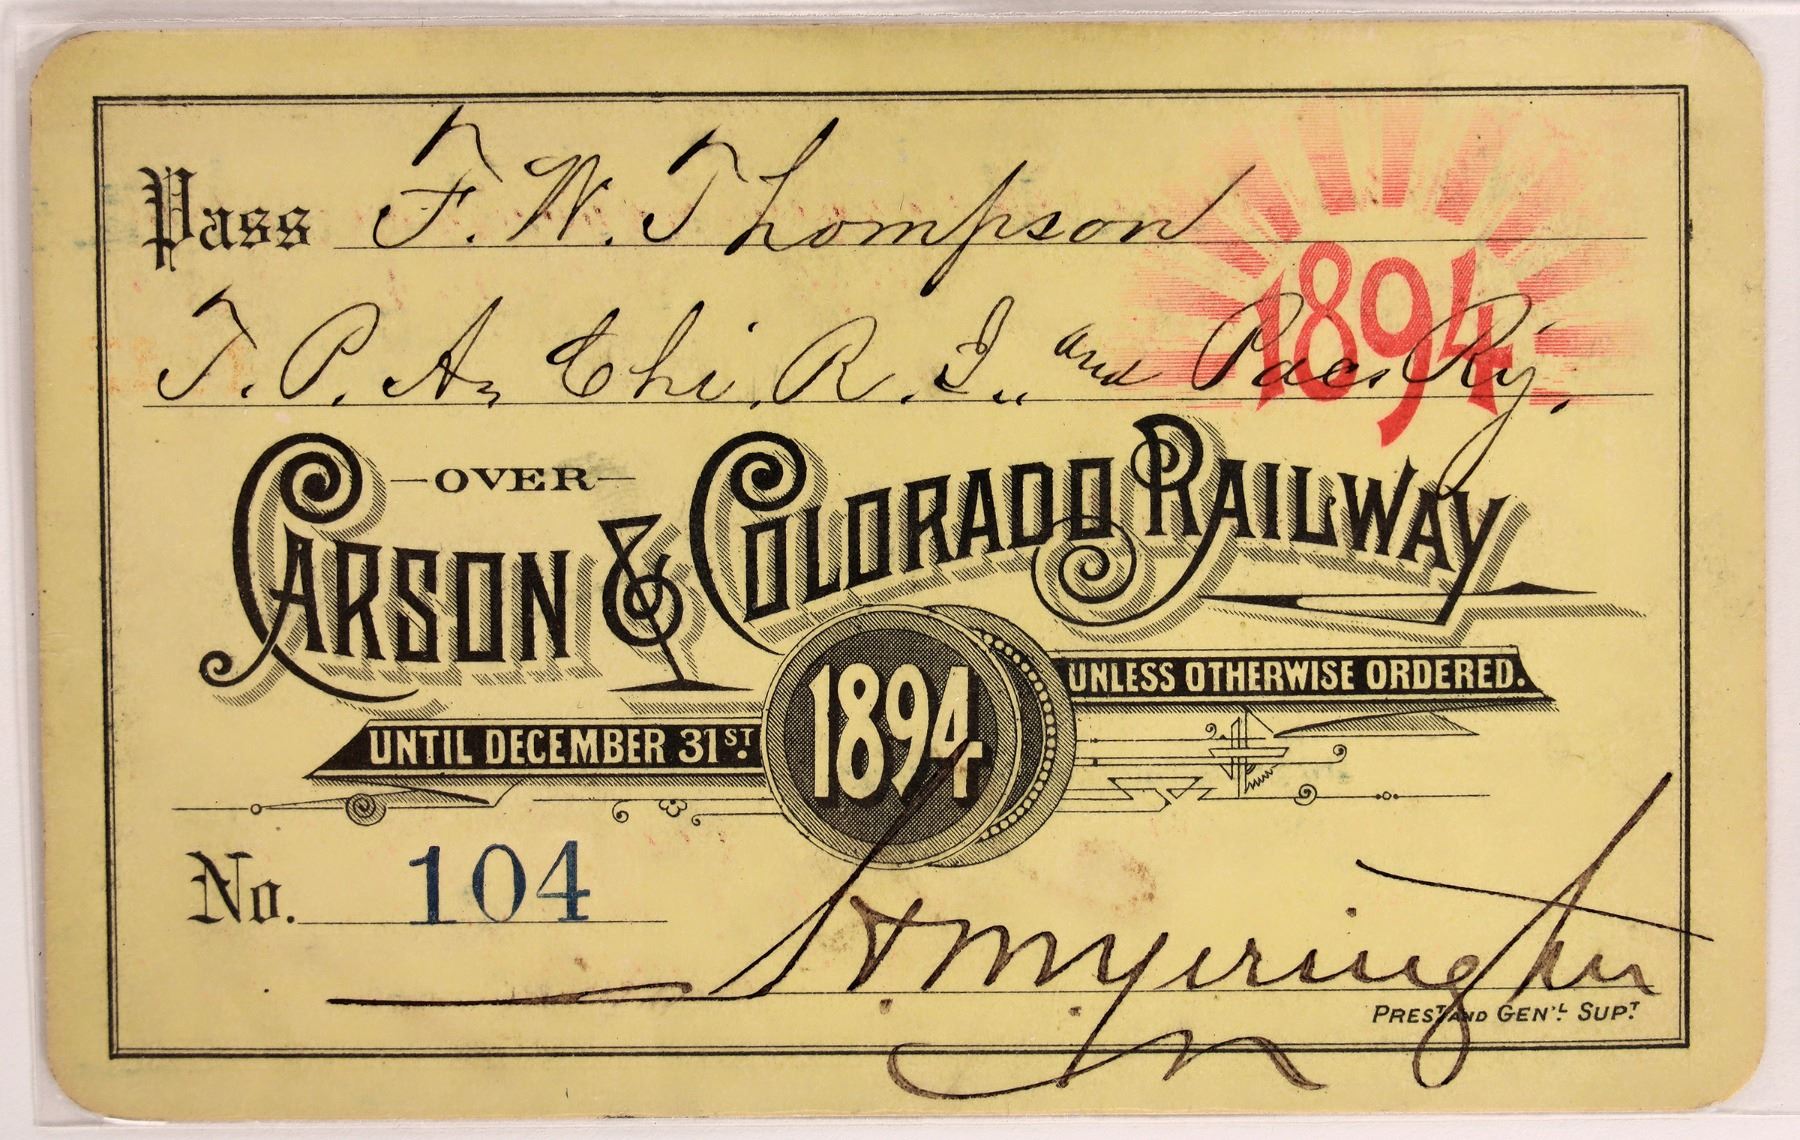 Pass F. W. Thompson
1894
T. P. A., Chi. R. I., and Pac. Ry.
—OVER—
CARSON & COLORADO RAILWAY
UNLESS OTHERWISE ORDERED.
UNTIL DECEMBER 31ST.
1894
No. 104
PREST. AND GEN'L. SUPT.